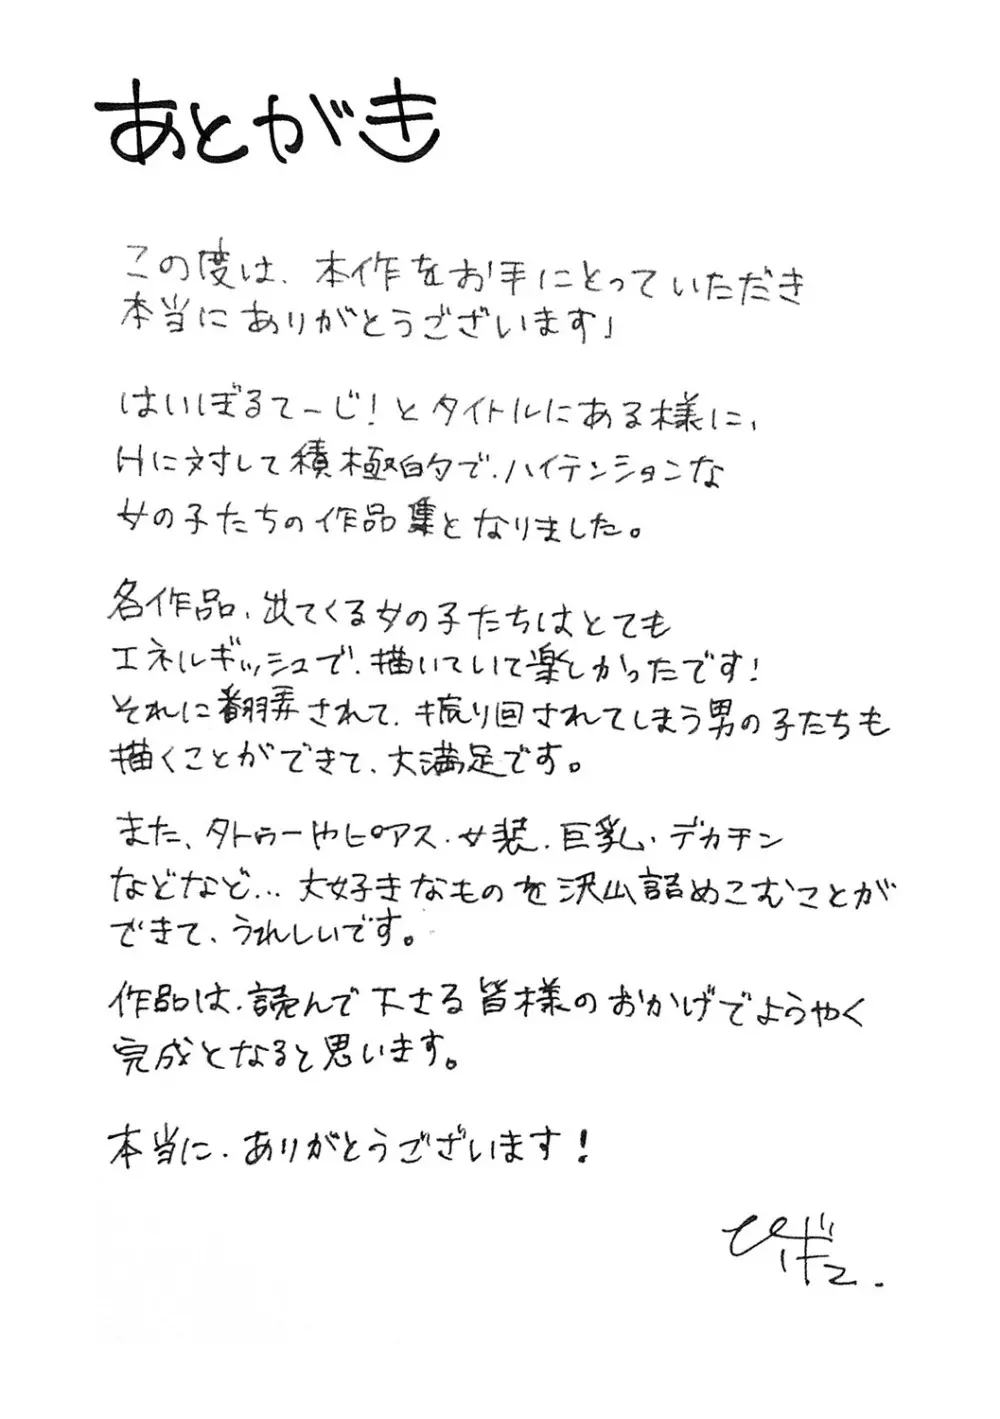 あとがき
この度は、本作をお手にとっていただき
本当にありがとうございます」
はいぼるてーじ!とタイトルにある様に、
Hに対して積極的で、ハイテンションな
女の子たちの作品集となりました。
各作品、出てくる女の子たちはとても
エネルギッシュで、描いていて楽しかったです!
それに翻弄されて、振り回されてしまう男の子たちも
描くことができて、大満足です。
また、タトゥーやピアス・女装・巨乳・デカチン
などなど…大好きなものを沢山詰めこむことが
できて、うれしいです。
作品は、読んで下さる皆様のおかげでようやく
完成となると思います。
本当に、ありがとうございます!